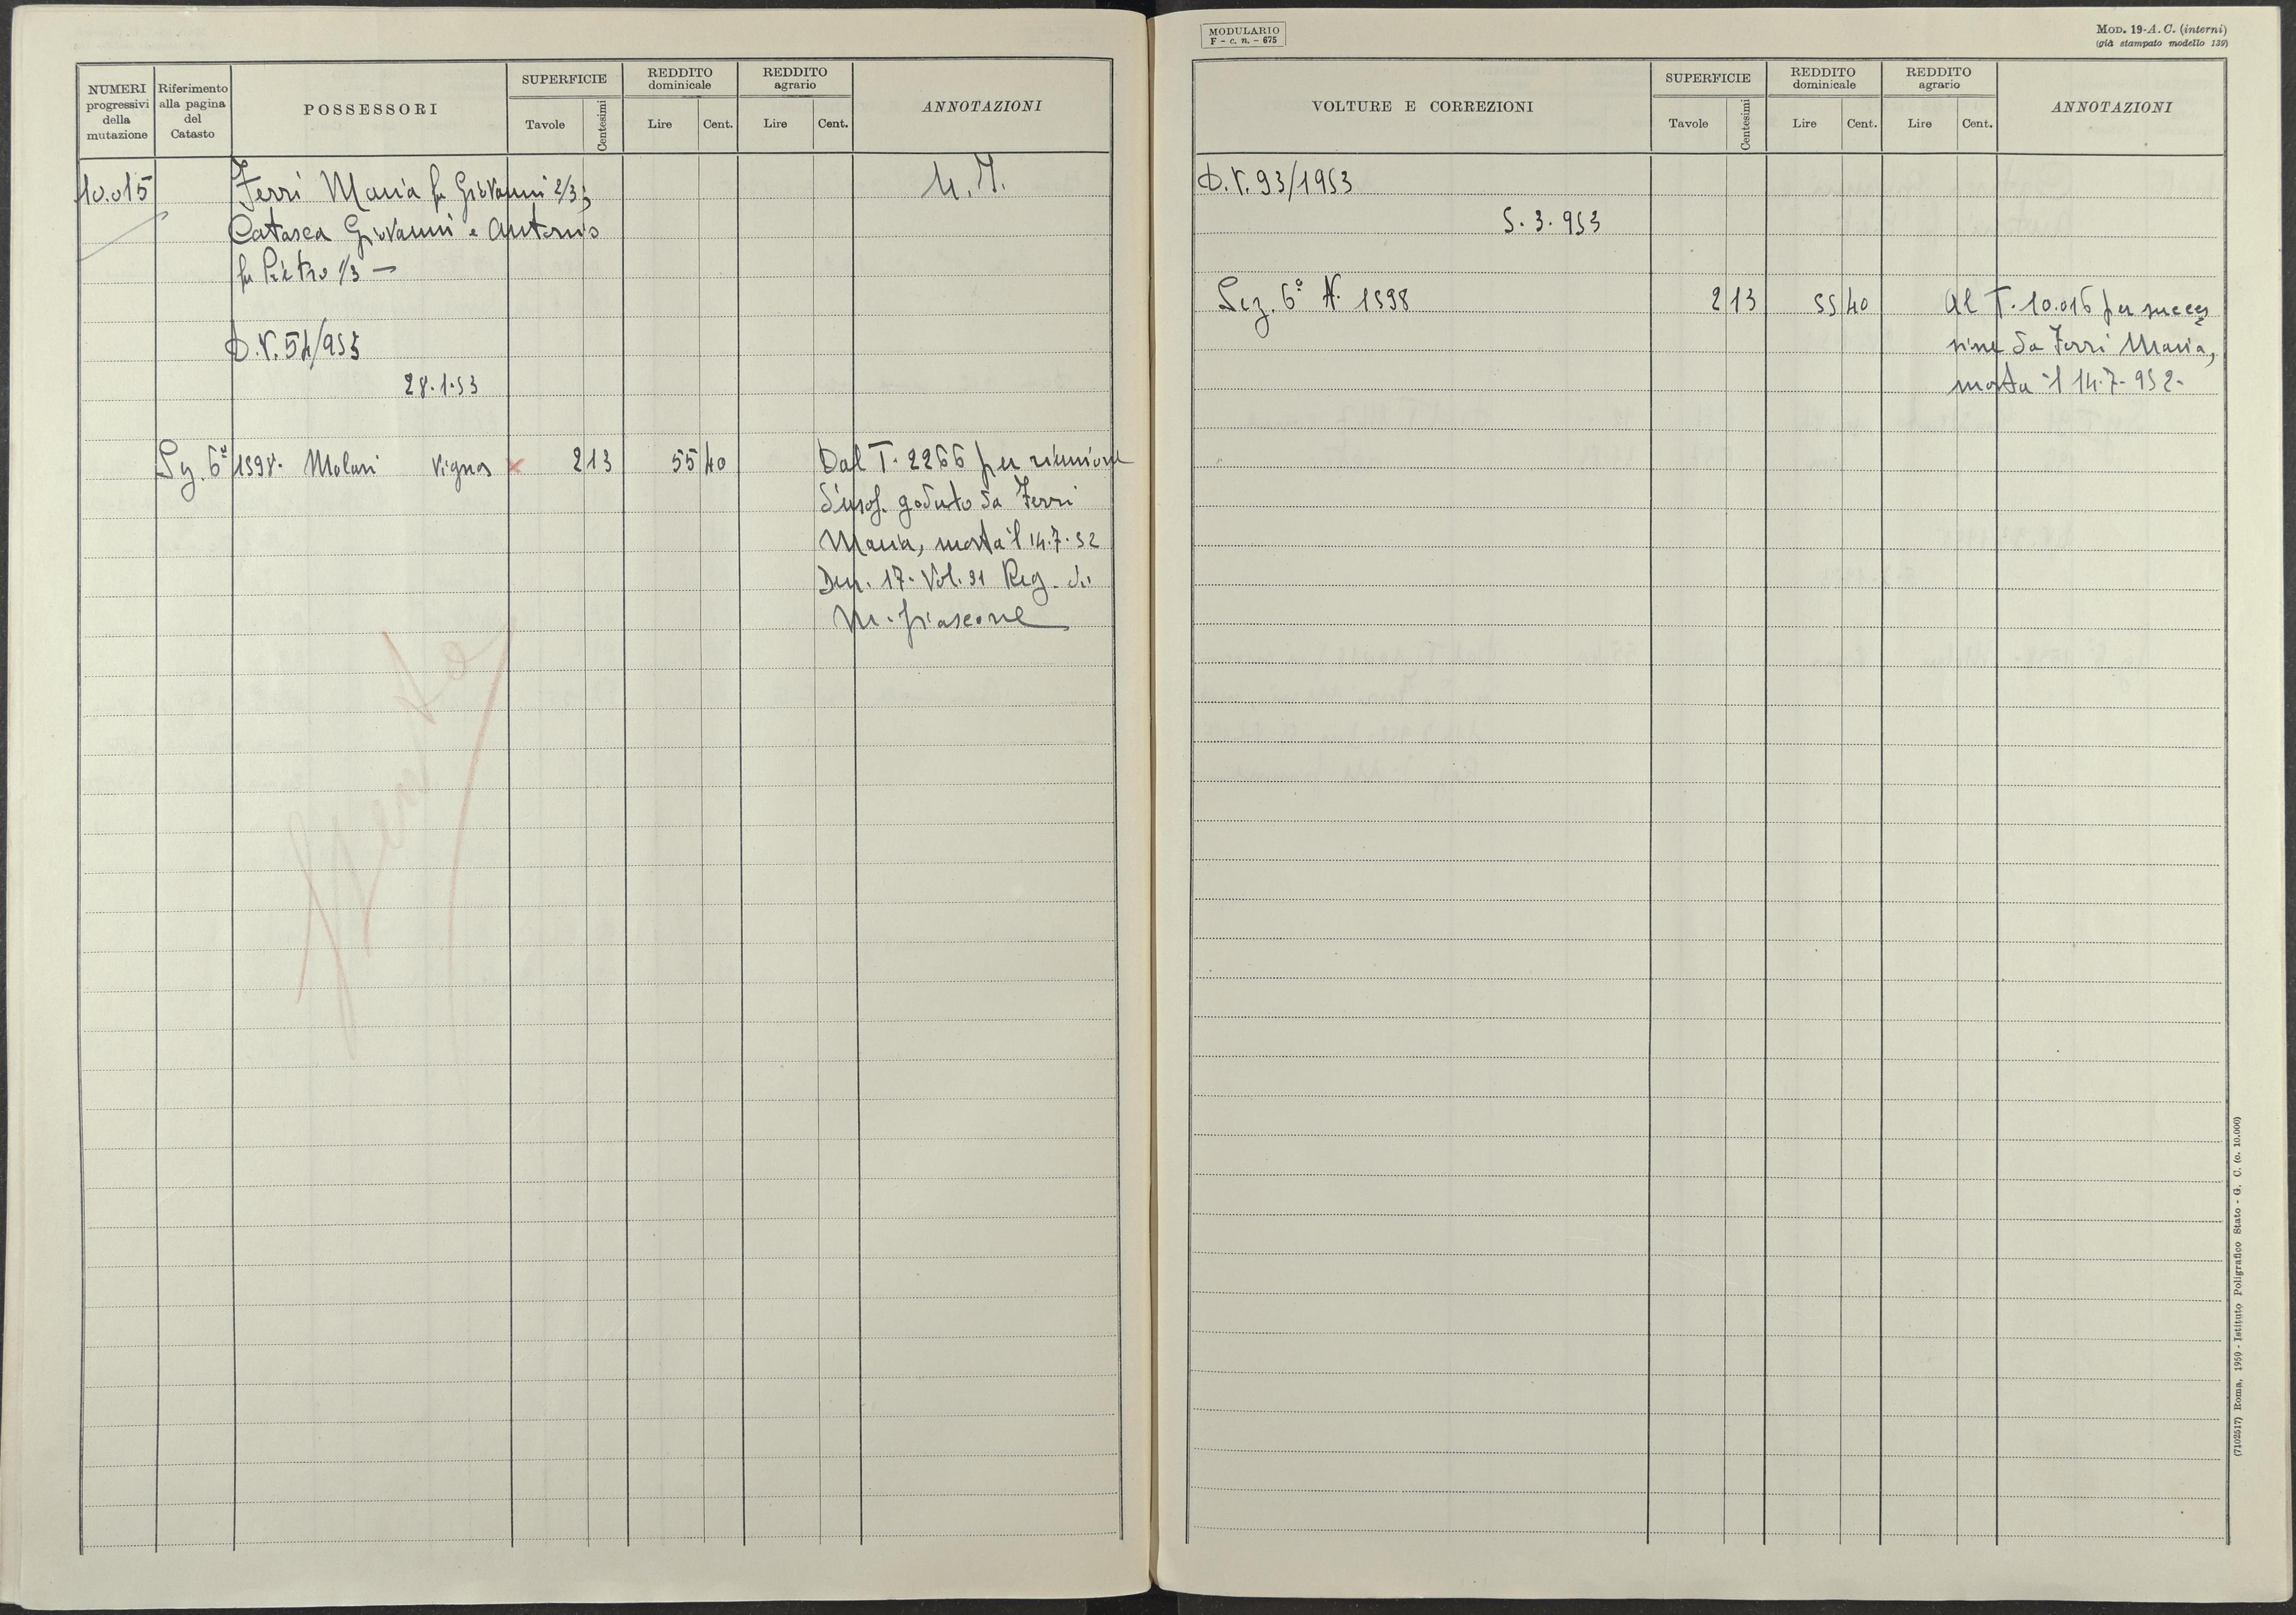 NUMERI progressivi della mutazione
Riferimento alla pagina del Catasto
POSSESSORI
SUPERFICIE
Tavole
Centesimi
REDDITO dominicale
Lire
Cent.
REDDITO agrario
Lire
Cent.
ANNOTAZIONI
10.015
Ferri Maria fu Giovanni 2/3;
Catasca Giovanni e Antonio
fu Pietro 1/3 —
D.V. 54/953
28.1.53
Sez. 6ª 1598. Molari Vigna x 2 13 55 40
Dal T. 2266 per riunione
d'usof. goduto da Ferri
Maria, morta il 14.7.52
Den. 17. Vol. 91 Reg. di
M. fiascone
MODULARIO
F - c. n. - 675
MOD. 19-A. C. (interni)
(già stampato modello 139)
VOLTURE E CORREZIONI
SUPERFICIE
Tavole
Centesimi
REDDITO dominicale
Lire
Cent.
REDDITO agrario
Lire
Cent.
ANNOTAZIONI
D.V. 93/1953
5.3.953
Sez. 6ª N. 1598 2 13 55 40
Al T. 10.016 per succes
sine da Ferri Maria,
morta il 14.7.952.
(7102517) Roma, 1950 - Istituto Poligrafico Stato - G. C. (c. 10.000)